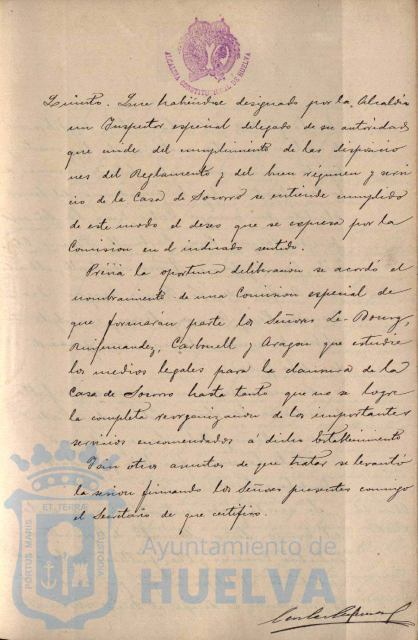 ALCALDIA CONSTITUCIONAL DE HUELVA
Quinto. Que habiendose designado por la Alcaldia
un Inspector especial delegado de su autoridad
que cuide del cumplimiento de las disposicio
nes del Reglamento y del buen régimen y servi
cio de la Casa de Socorro se entiende cumplido
de este modo el deseo que se expresa por la
Comision en el indicado sentido.
Prévia la oportuna deliberacion se acordó el
nombramiento de una Comision especial de
que formarán parte los Señores Le-Bourg,
Carbonell y Aragon que estudie
los medios legales para la clausura de la
Casa de Socorro hasta tanto que no se logre
la completa reorganizacion de los importantes
servicios encomendados á dicho Establecimiento
Y sin otros asuntos de que tratar se levantó
la sesion firmando los Señores presentes conmigo
el Secretario de que certifico.
PORTUS MARIS ET TERRAE CUSTODIA
Ayuntamiento de
HUELVA